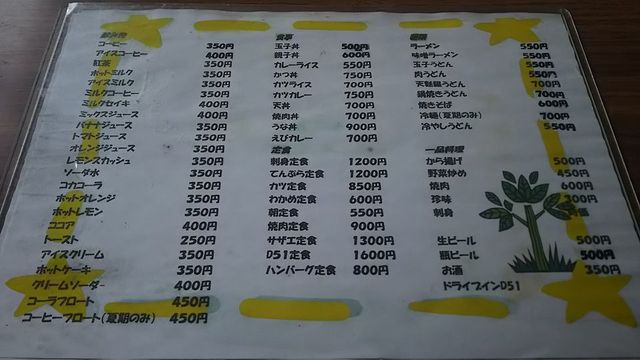 コーヒー 350円
アイスコーヒー 400円
紅茶 350円
ホットミルク 350円
アイスミルク 350円
ミルクコーヒー 350円
ミルクセイキ 400円
ミックスジュース 400円
バナナジュース 350円
トマトジュース 350円
オレンジジュース 350円
レモンスカッシュ 350円
ソーダ水 350円
コカコーラ 350円
ホットオレンジ 350円
ホットレモン 350円
ココア 400円
トースト 250円
アイスクリーム 350円
ホットケーキ 350円
クリームソーダ 400円
コーラフロート 450円
コーヒーフロート(夏期のみ) 450円
食事
玉子丼 500円
親子丼 600円
カレーライス 550円
かつ丼 750円
カツライス 700円
カツカレー 750円
天丼 700円
焼肉丼 700円
うな丼 900円
えびカレー 700円
定食
刺身定食 1200円
てんぷら定食 1200円
カツ定食 850円
わかめ定食 600円
朝定食 550円
焼肉定食 900円
サザエ定食 1300円
D51定食 1600円
ハンバーグ定食 800円
麺類
ラーメン 550円
味噌ラーメン 550円
玉子うどん 550円
肉うどん 550円
天麩羅うどん 700円
鍋焼きうどん 700円
焼きそば 600円
冷麺(夏期のみ) 700円
冷やしうどん 550円
一品料理
から揚げ 500円
野菜炒め 450円
焼肉 600円
珍味 300円
刺身
生ビール 500円
瓶ビール 500円
お酒 350円
ドライブインD51